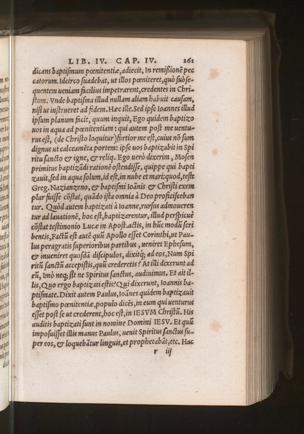 LIB. IV. CAP. IV. 261
dicans baptismum pœnitentiæ, adiecit, in remißionẽ pec
catorum. Idcirco suadebat, ut illos pœniteret, quò subse-
quentem ueniam facilius impetrarent, credentes in Chri-
stum. Vnde baptisma illud nullam aliam habuit causam,
nisi ut instrueret ad fidem. Hæc ille. Sed ipse Ioannes illud
ipsum planum facit, quum inquit, Ego quidem baptizo
uos in aqua ad pœnitentiam: qui autem post me uentu-
rus est, (de Christo loquitur) fortior me est, cuius nõ sum
dignus ut calceamẽta portem: ipse uos baptizabit in Spi
ritu sancto & igne, & reliq. Ego uerò dixerim, Mosen
primitus baptizãdi rationẽ ostendisse, quippe qui bapti
zauit, sed in aqua solum, id est, in nube et mari: quod, teste
Greg. Nazianzeno, & baptismi Ioãnis & Christi exem
plar fuisse cõstat, quãdo ista omnia à Deo proficiseban
tur. Quòd autem baptizati à Ioanne, rursus admoueren
tur ad lauationẽ, hoc est, baptizarentur, illud perspicuè
cõstat testimonio Lucæ in Apost. actis, in hũc modũ scri
bentis, Factũ est autẽ quũ Apollo esset Corinthi, ut Pau
lus peragratis superioribus partibus, ueniret Ephesum,
& inueniret quosdã discipulos, dixitq; ad eos, Num Spi
ritũ sanctũ accepistis, quũ credereatis? At illi dixerunt ad
eũ, Imò neq; si t ne Spiritus sanctus, audiuimus. Et ait il-
lis, Quo ergo baptizati estis? Qui dixerunt, Ioannis ba-
ptismate. Dixit autem Paulus, Ioãnes quidem baptizauit
baptismo pœnitentiæ, populo dicẽs, in eum qui uenturus
esset post se ut crederent, hoc est, in IESVM Christũ. His
auditis baptizati sunt in nomine Domini IESV. Et quũ
imposuisset illis manus Paulus, uenit Spiritus sanctus su-
per eos, & loquebãtur linguis, et prophetabãt, etc. Hæc
r iij